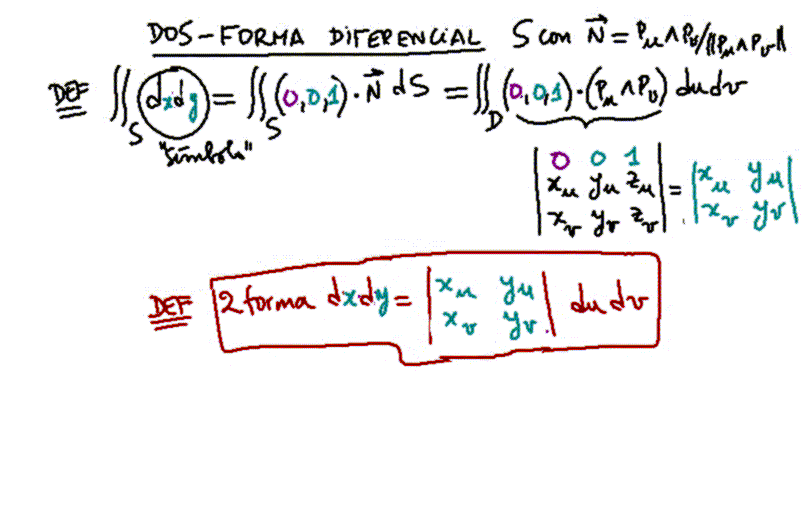 DOS-FORMA DIFERENCIAL S con N⃗ = Pᵤ∧Pᵥ/||Pᵤ∧Pᵥ||
DEF ∬_S dxdy = ∬_S (0,0,1)·N⃗ dS = ∬_D (0,0,1)·(Pᵤ∧Pᵥ) dudv
"símbolo"
| 0 0 1 |
| xᵤ yᵤ zᵤ | = | xᵤ yᵤ |
| xᵥ yᵥ zᵥ | | xᵥ yᵥ |
DEF 2 forma dxdy = | xᵤ yᵤ | du dv
| xᵥ yᵥ |